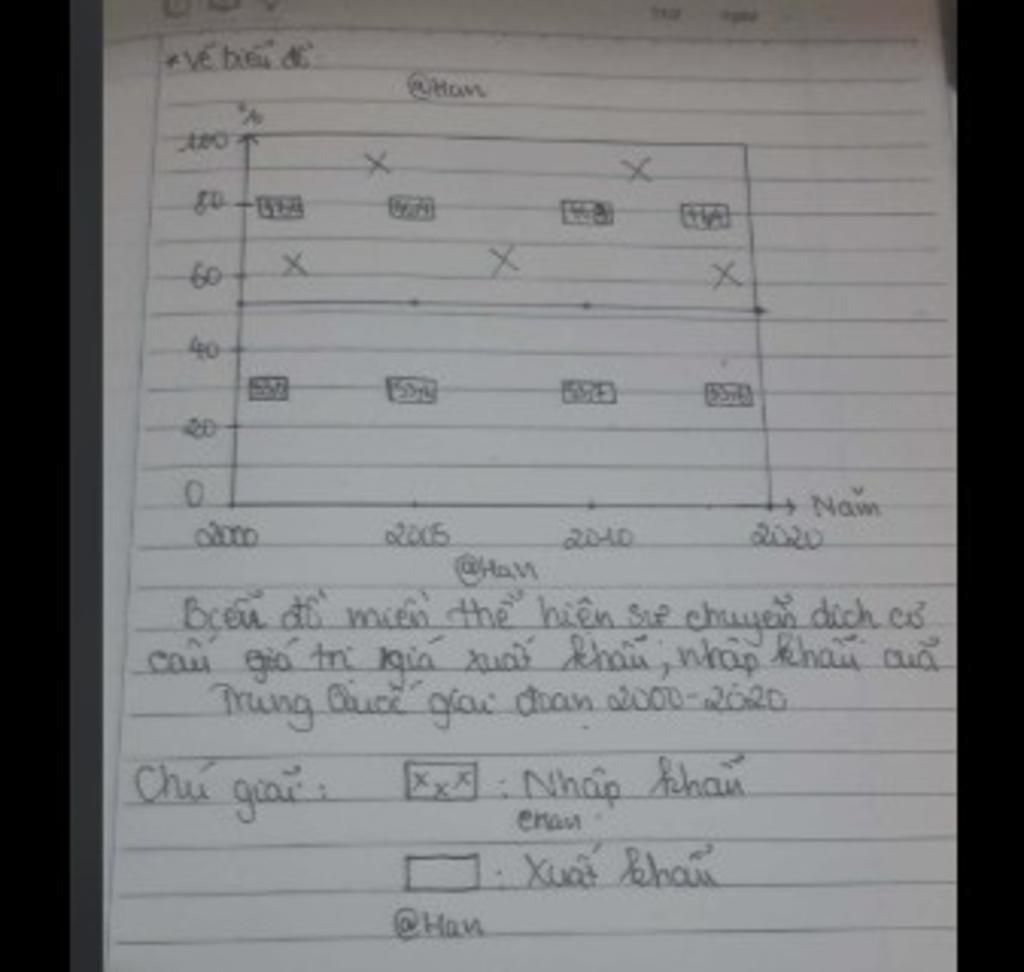 * Vẽ biểu đồ
@Han
%
100
80
60
40
53,4
20
0
Năm
2000 2005 2010 2020
@Han
Biểu đồ miền thể hiện sự chuyển dịch cơ
cấu giá trị giá xuất khẩu, nhập khẩu của
Trung Quốc giai đoạn 2000-2020
Chú giải: XXX : Nhập khẩu
@Han
: Xuất khẩu
@Han